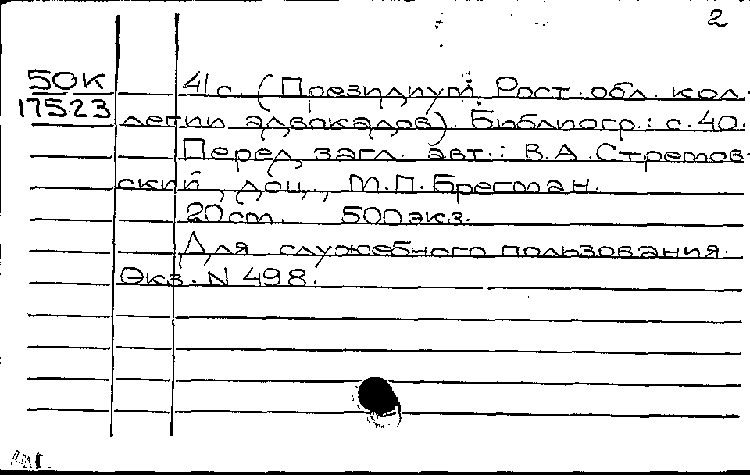 2
50К
17523
41 с. (Президиум Рост. обл. кол-
легии адвокадов). Библиогр.: с. 40.
Перед загл. авт.: В.А.Стремов-
ский, доц., М.П.Брегман.
20 cm. 500 экз.
Для служебного пользования.
Экз. N 498.